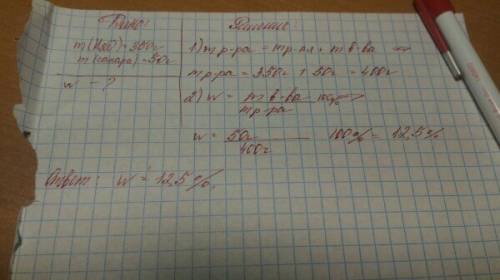 Дано:
m(H2O) = 350г
m(сахара) = 50г
w - ?
Решение:
1) m р-ра = m р-ля + m в-ва =>
m р-ра = 350г + 50г = 400г
2) w = m в-ва / m р-ра 100% =>
w = 50г / 400г 100% = 12,5%
Ответ: w = 12,5%.